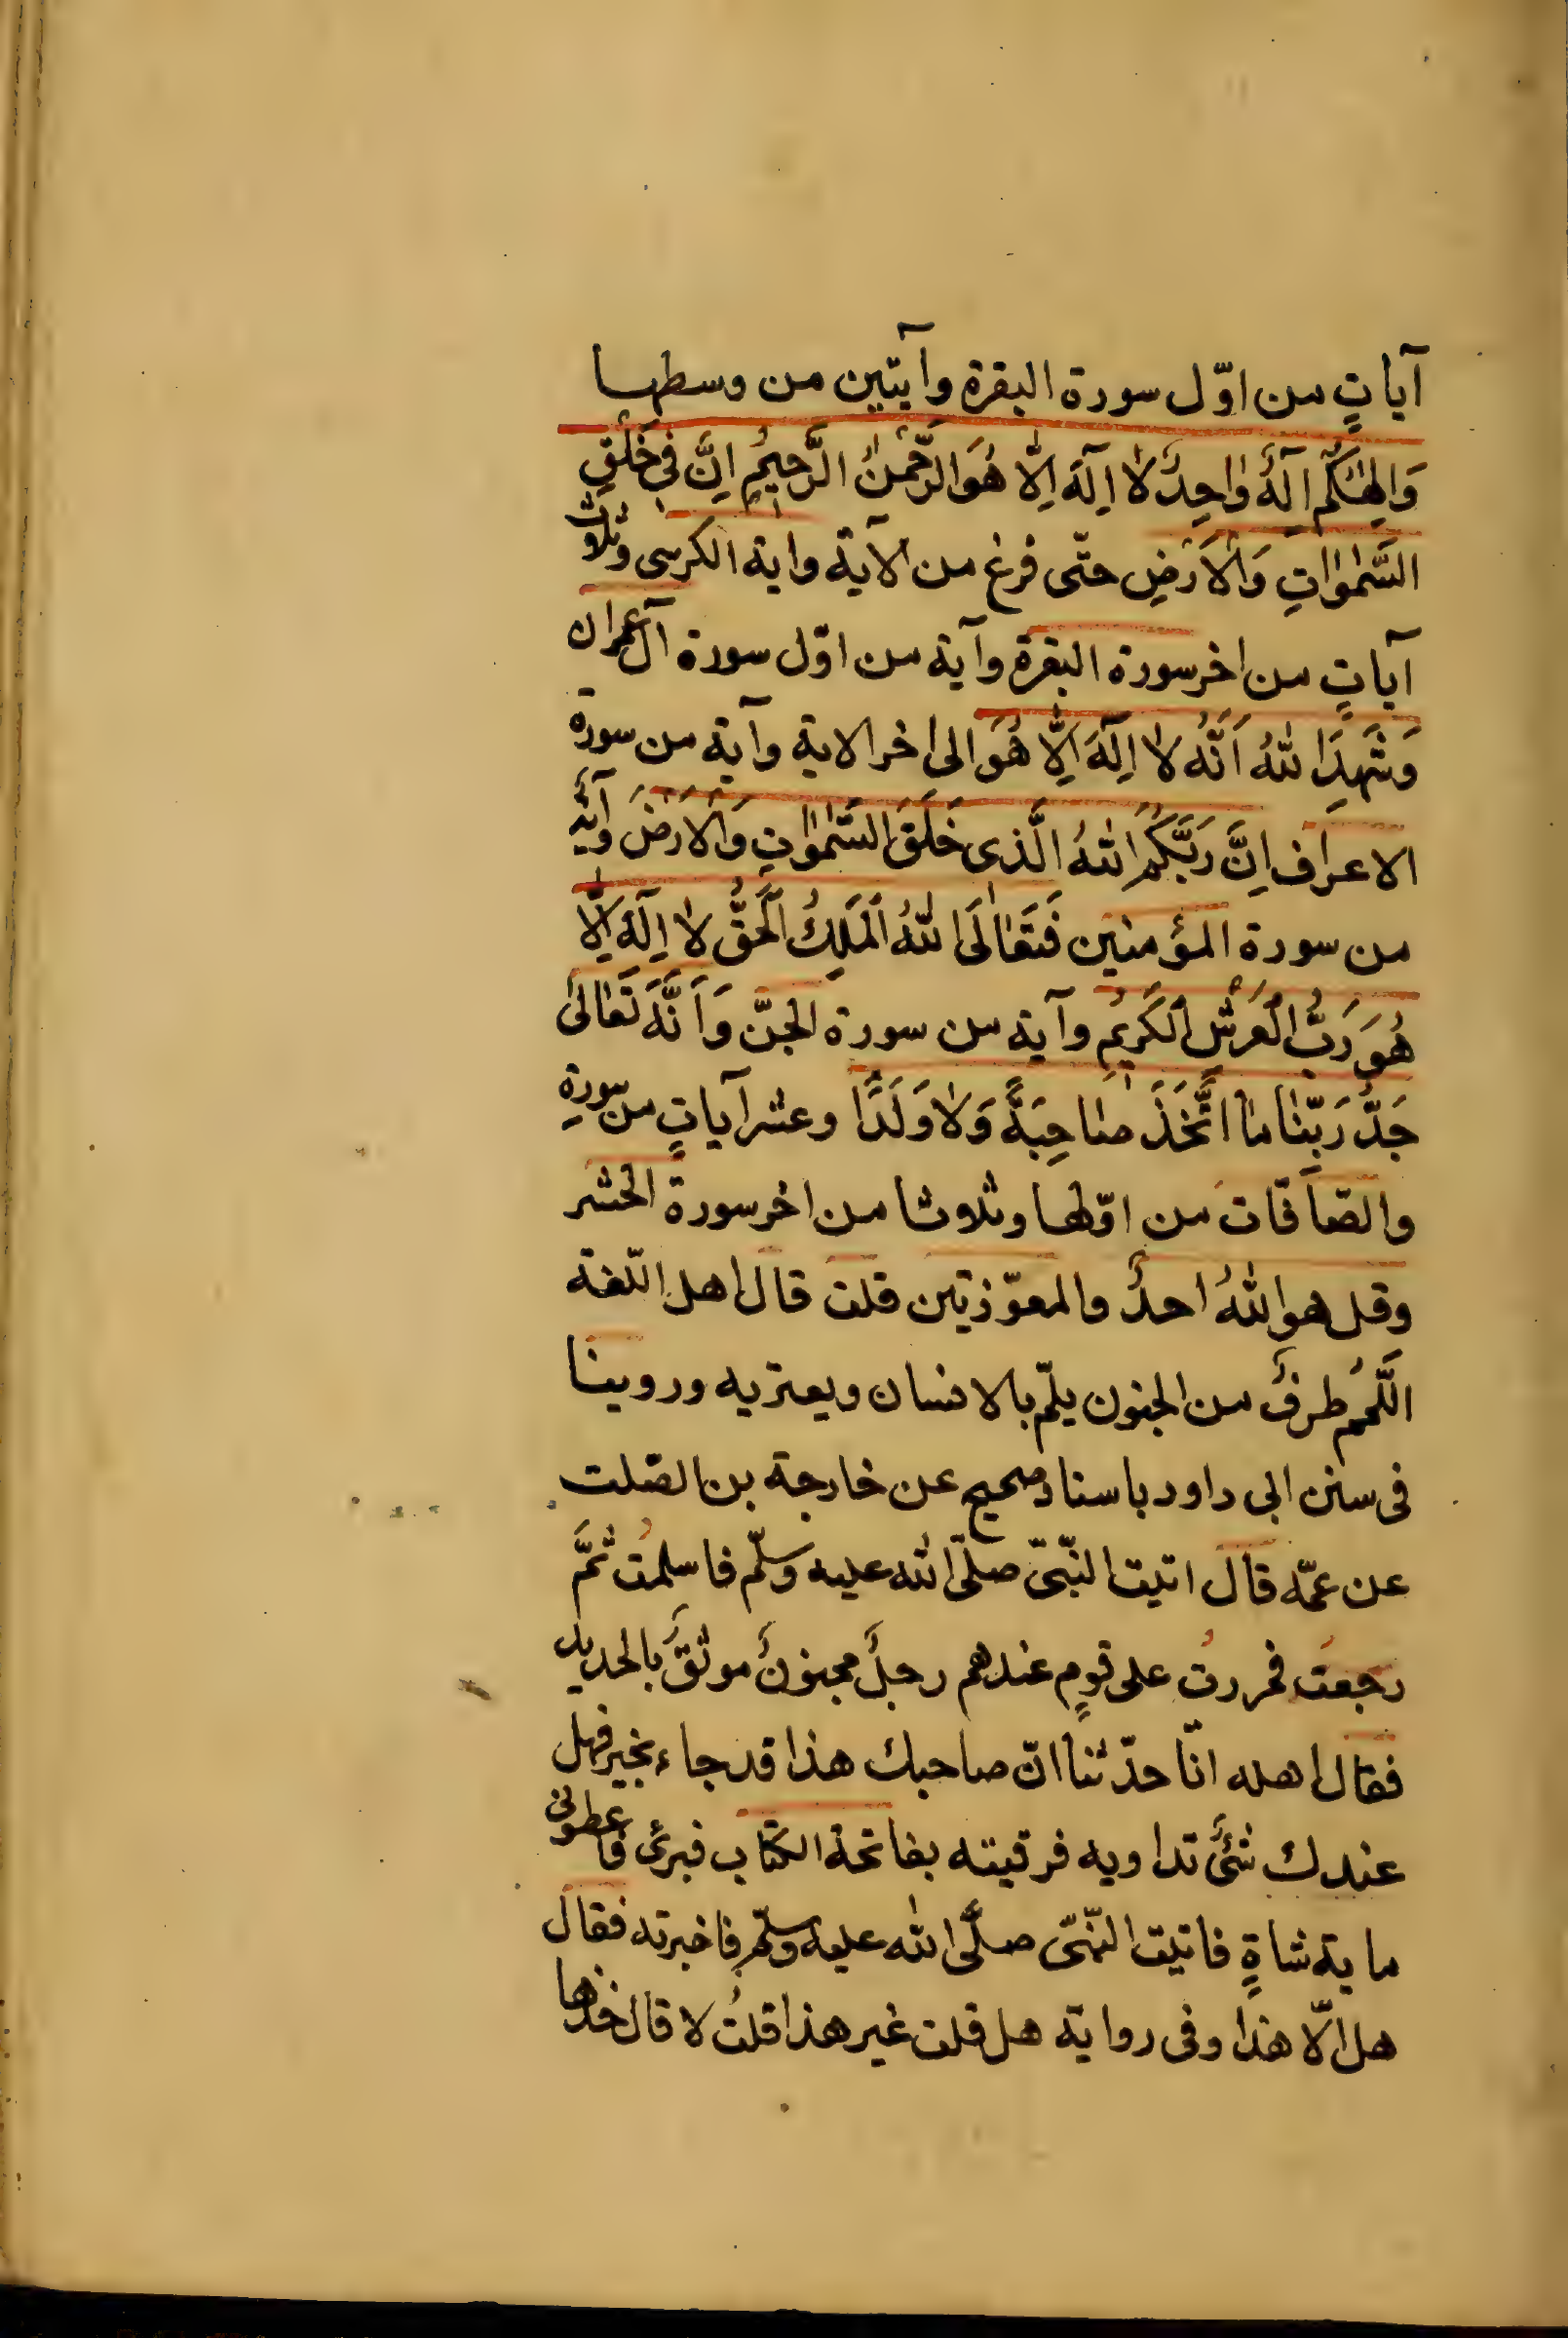 آياتٍ من اوّل سورة البقرة وآيتين من وسطها
وَاِلٰهُكُمْ اِلٰهٌ وٰاحِدٌ لاٰ اِلٰهَ اِلّٰا هُوَ الرَّحْمٰنُ الرَّحيمُ اِنَّ فى خَلْقِ
السَّمٰوٰاتِ وَالْاَرْضِ حتّى فرغ من الآية واية الكرسى وثلاث
آياتٍ من اخر سورة البقرة وآية من اوّل سورة آل عمران
وَشَهِدَ اللّٰهُ اَنَّهُ لاٰ اِلٰهَ اِلّٰا هُوَ الى اخر الاية وآية من سورة
الاعراف اِنَّ رَبَّكُمُ اللّٰهُ الَّذى خَلَقَ السَّمٰوٰاتِ وَالْاَرْضَ وآية
من سورة المؤمنين فَتَعٰالَى اللّٰهُ الْمَلِكُ الْحَقُّ لاٰ اِلٰهَ اِلّٰا
هُوَ رَبُّ الْعَرْشِ الْكَريمِ وآية من سورة الجنّ وَاَنَّهُ تَعٰالىٰ
جَدُّ رَبِّنٰا مٰا اتَّخَذَ صٰاحِبَةً وَلاٰ وَلَدًا وعشر آياتٍ من سورةِ
والصّافّات من اوّلها وثلاثا من اخر سورة الحشر
وقل هو اللّٰهُ احدٌ والمعوّذتين قلت قال اهل اللّغة
اللَّمَمُ طرفٌ من الجنون يلمّ بالانسان ويعتريه وروينا
فى سنن ابى داود باسناد صحيح عن خارجة بن الصّلت
عن عمّه قال اتيت النّبىّ صلّى اللّٰه عليه وسلّم فاسلمتُ ثمَّ
رجعتُ فمررتُ على قومٍ عندهم رجلٌ مجنونٌ موثقٌ بالحديد
فقال اهله انّا حدّثنا انّ صاحبك هذا قد جاء بخير فهل
عندك شئٌ تداويه فرقيته بفاتحة الكتاب فبرئ فاعطونى
ماية شاةٍ فاتيت النّبىّ صلَّى اللّٰه عليه وسلّم فاخبرته فقال
هل الّا هذا وفى رواية هل قلت غير هذا قلتُ لا قال خذها